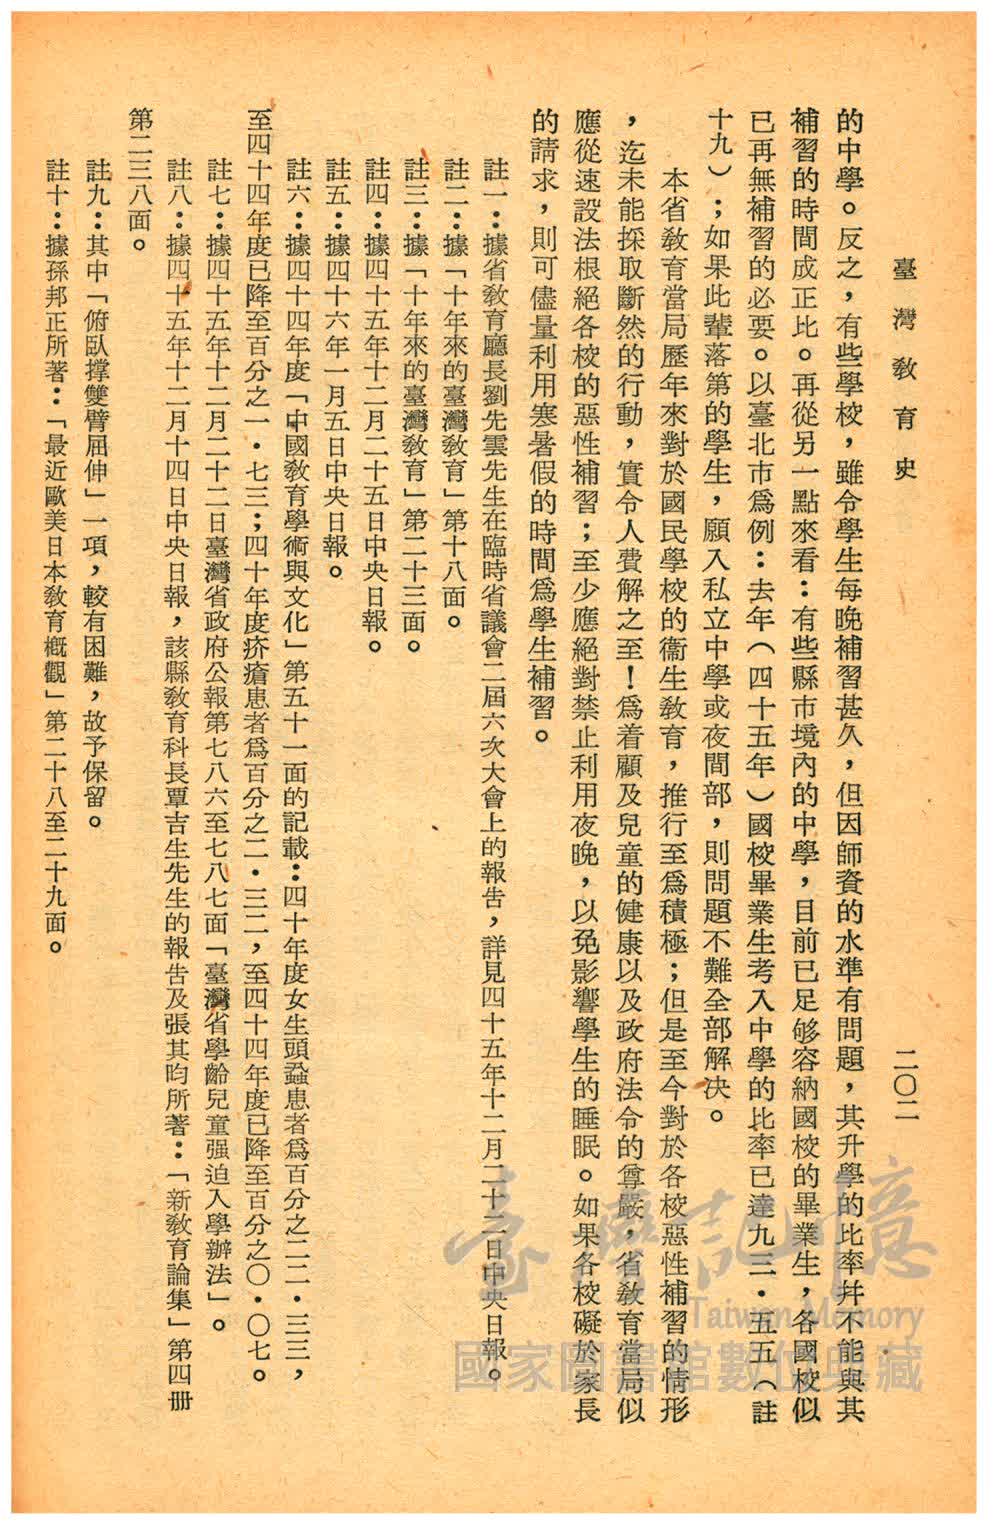 臺灣教育史
二〇二
的中學。反之，有些學校，雖令學生每晚補習甚久，但因師資的水準有問題，其升學的比率幷不能與其
補習的時間成正比。再從另一點來看：有些縣市境內的中學，目前已足够容納國校的畢業生，各國校似
已再無補習的必要。以臺北市爲例：去年（四十五年）國校畢業生考入中學的比率已達九三．五五（註
十九）；如果此輩落第的學生，願入私立中學或夜間部，則問題不難全部解决。
本省教育當局歷年來對於國民學校的衞生教育，推行至爲積極；但是至今對於各校惡性補習的情形
，迄未能採取斷然的行動，實令人費解之至！爲着顧及兒童的健康以及政府法令的尊嚴，省教育當局似
應從速設法根絕各校的惡性補習；至少應絕對禁止利用夜晚，以免影響學生的睡眠。如果各校礙於家長
的請求，則可儘量利用寒暑假的時間爲學生補習。
註一：據省教育廳長劉先雲先生在臨時省議會二屆六次大會上的報告，詳見四十五年十二月二十二日中央日報。
註二：據「十年來的臺灣教育」第十八面。
註三：據「十年來的臺灣教育」第二十三面。
註四：據四十五年十二月二十五日中央日報。
註五：據四十六年一月五日中央日報。
註六：據四十四年度「中國教育學術與文化」第五十一面的記載：四十年度女生頭蝨患者爲百分之二二．三三，
至四十四年度已降至百分之一．七三；四十年度疥瘡患者爲百分之二．三二，至四十四年度已降至百分之〇．〇七。
註七：據四十五年十二月二十二日臺灣省政府公報第七八六至七八七面「臺灣省學齡兒童强迫入學辦法」。
註八：據四十五年十二月十四日中央日報，該縣教育科長覃吉生先生的報告及張其昀所著：「新教育論集」第四册
第二三八面。
註九：其中「俯臥撑雙臂屈伸」一項，較有困難，故予保留。
註十：據孫邦正所著：「最近歐美日本教育概觀」第二十八至二十九面。
臺灣記憶
Taiwan Memory
國家圖書館數位典藏